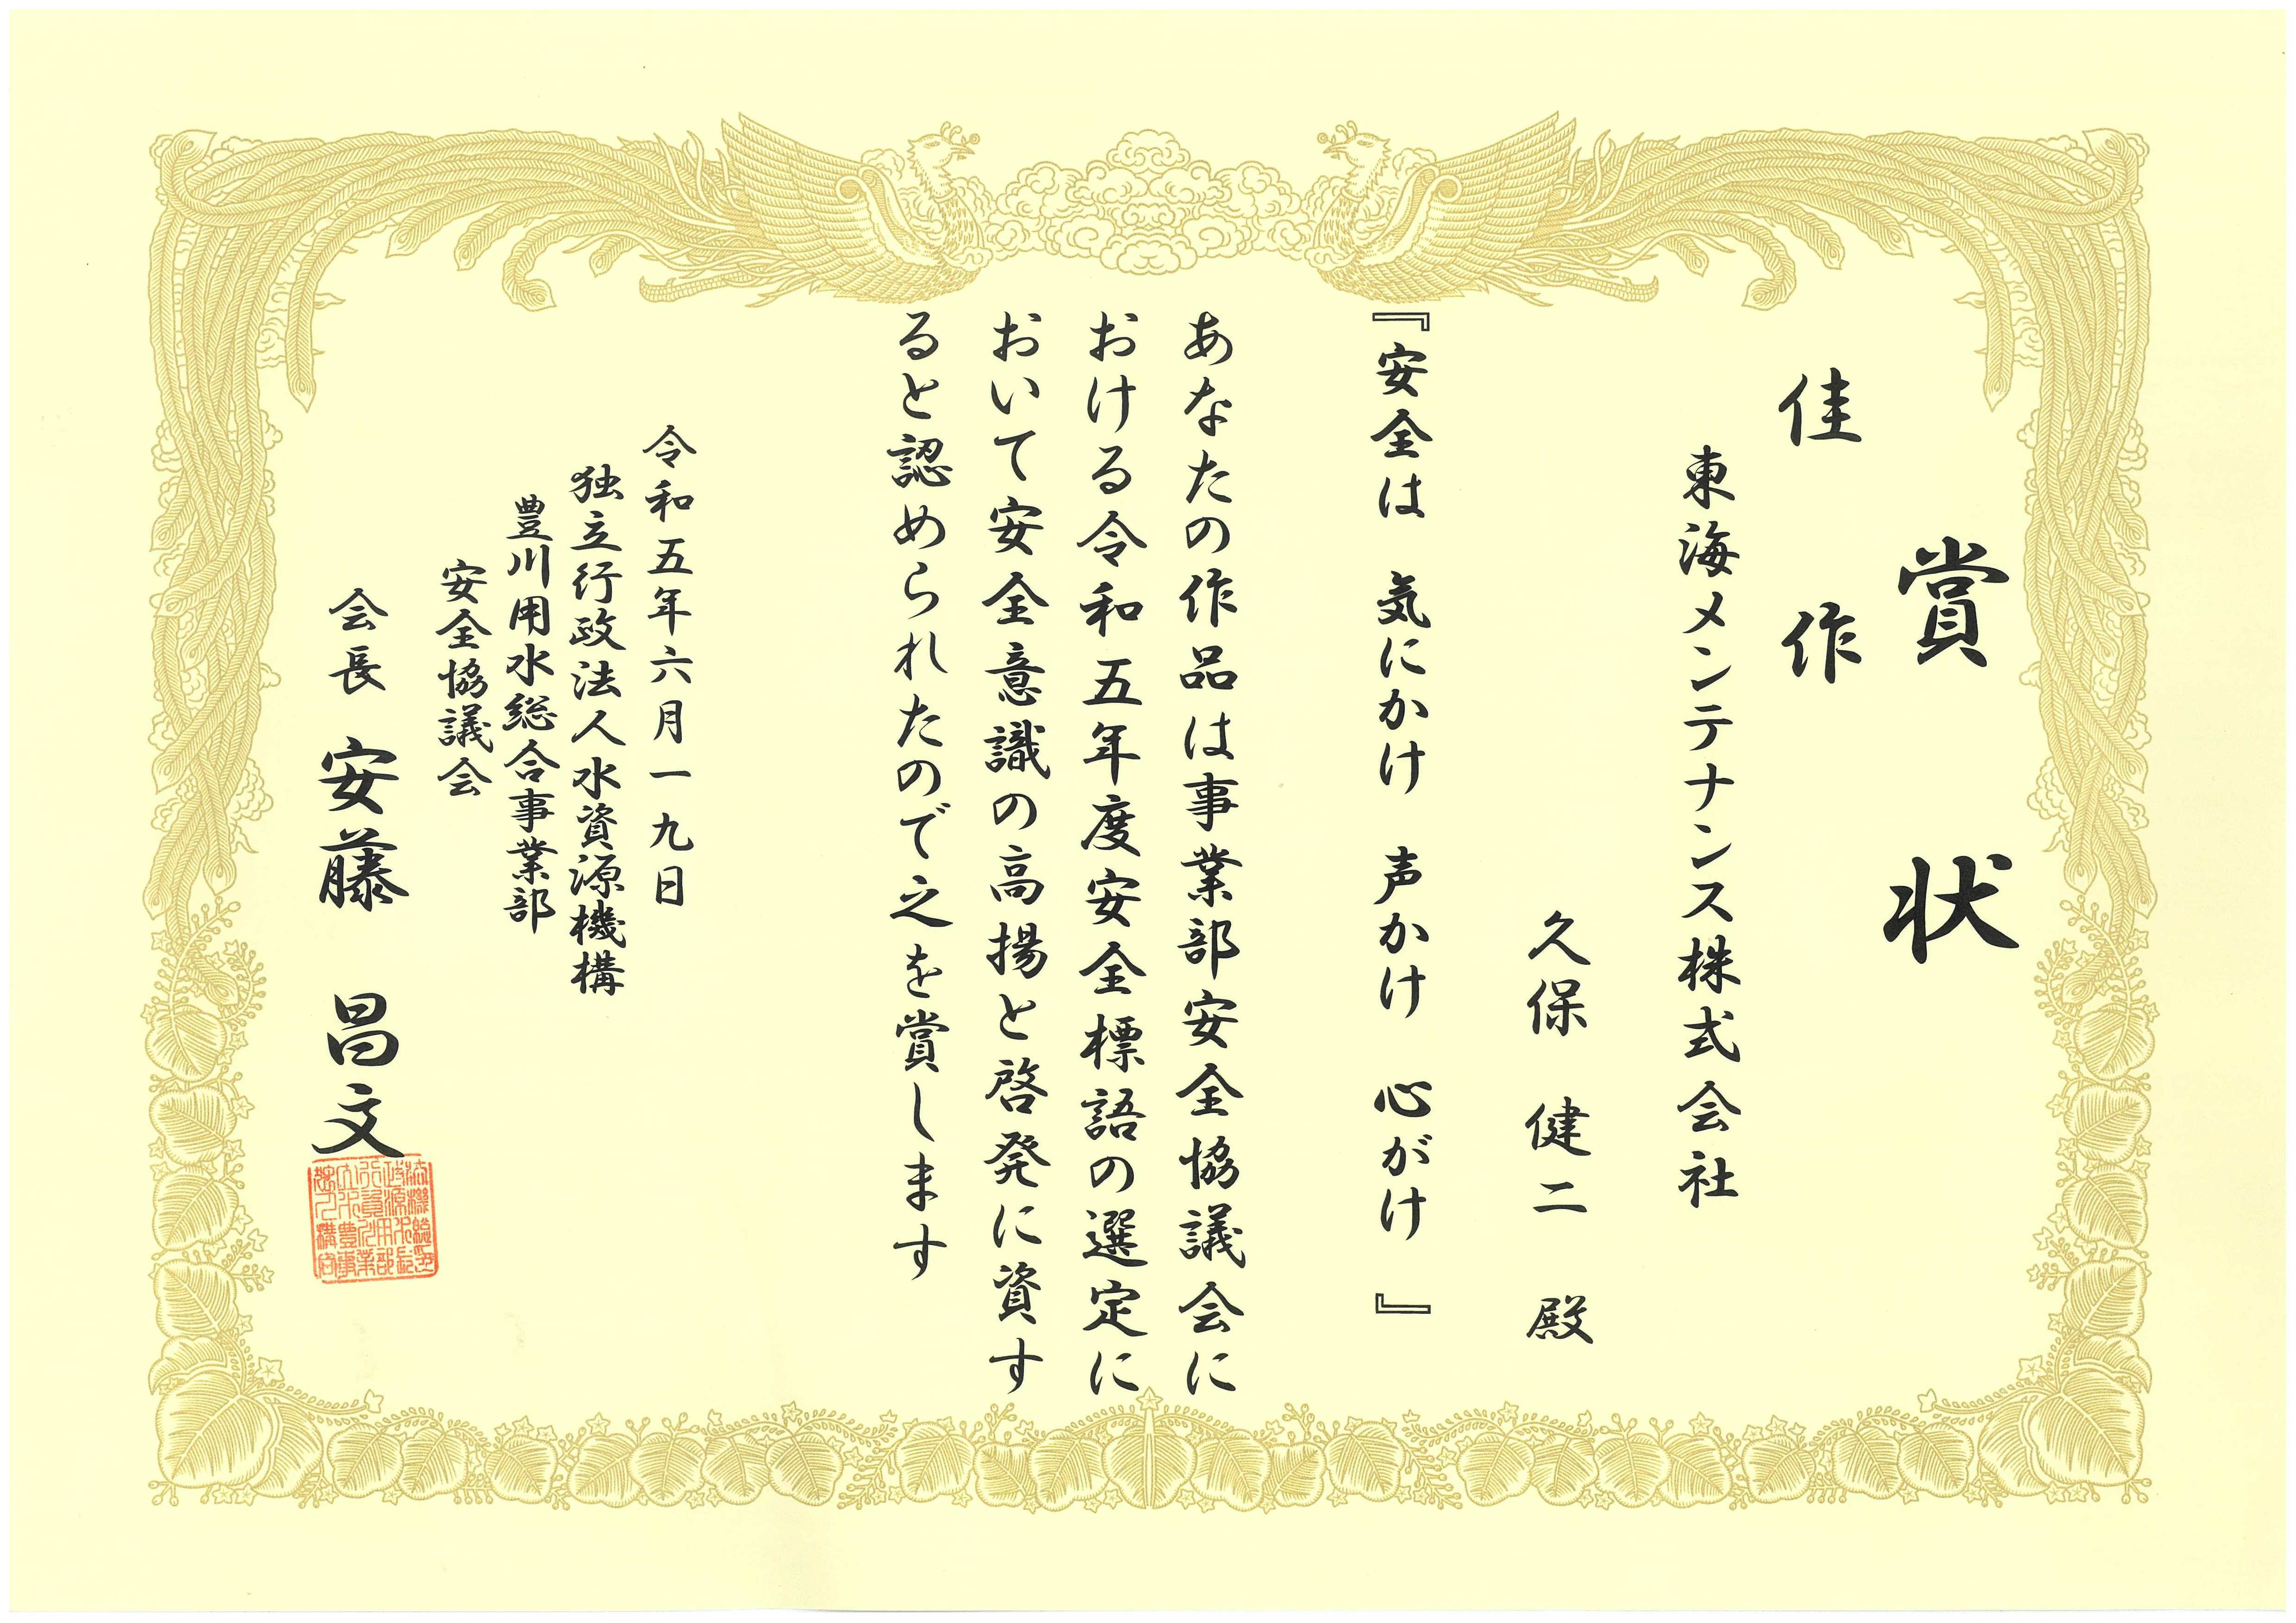 賞状
佳作
東海メンテナンス株式会社
久保 健二 殿
『安全は 気にかけ 声かけ 心がけ』
あなたの作品は事業部安全協議会に
おける令和五年度安全標語の選定に
おいて安全意識の高揚と啓発に資す
ると認められたので之を賞します
令和五年六月一九日
独立行政法人水資源機構
豊川用水総合事業部
安全協議会
会長 安藤 昌文